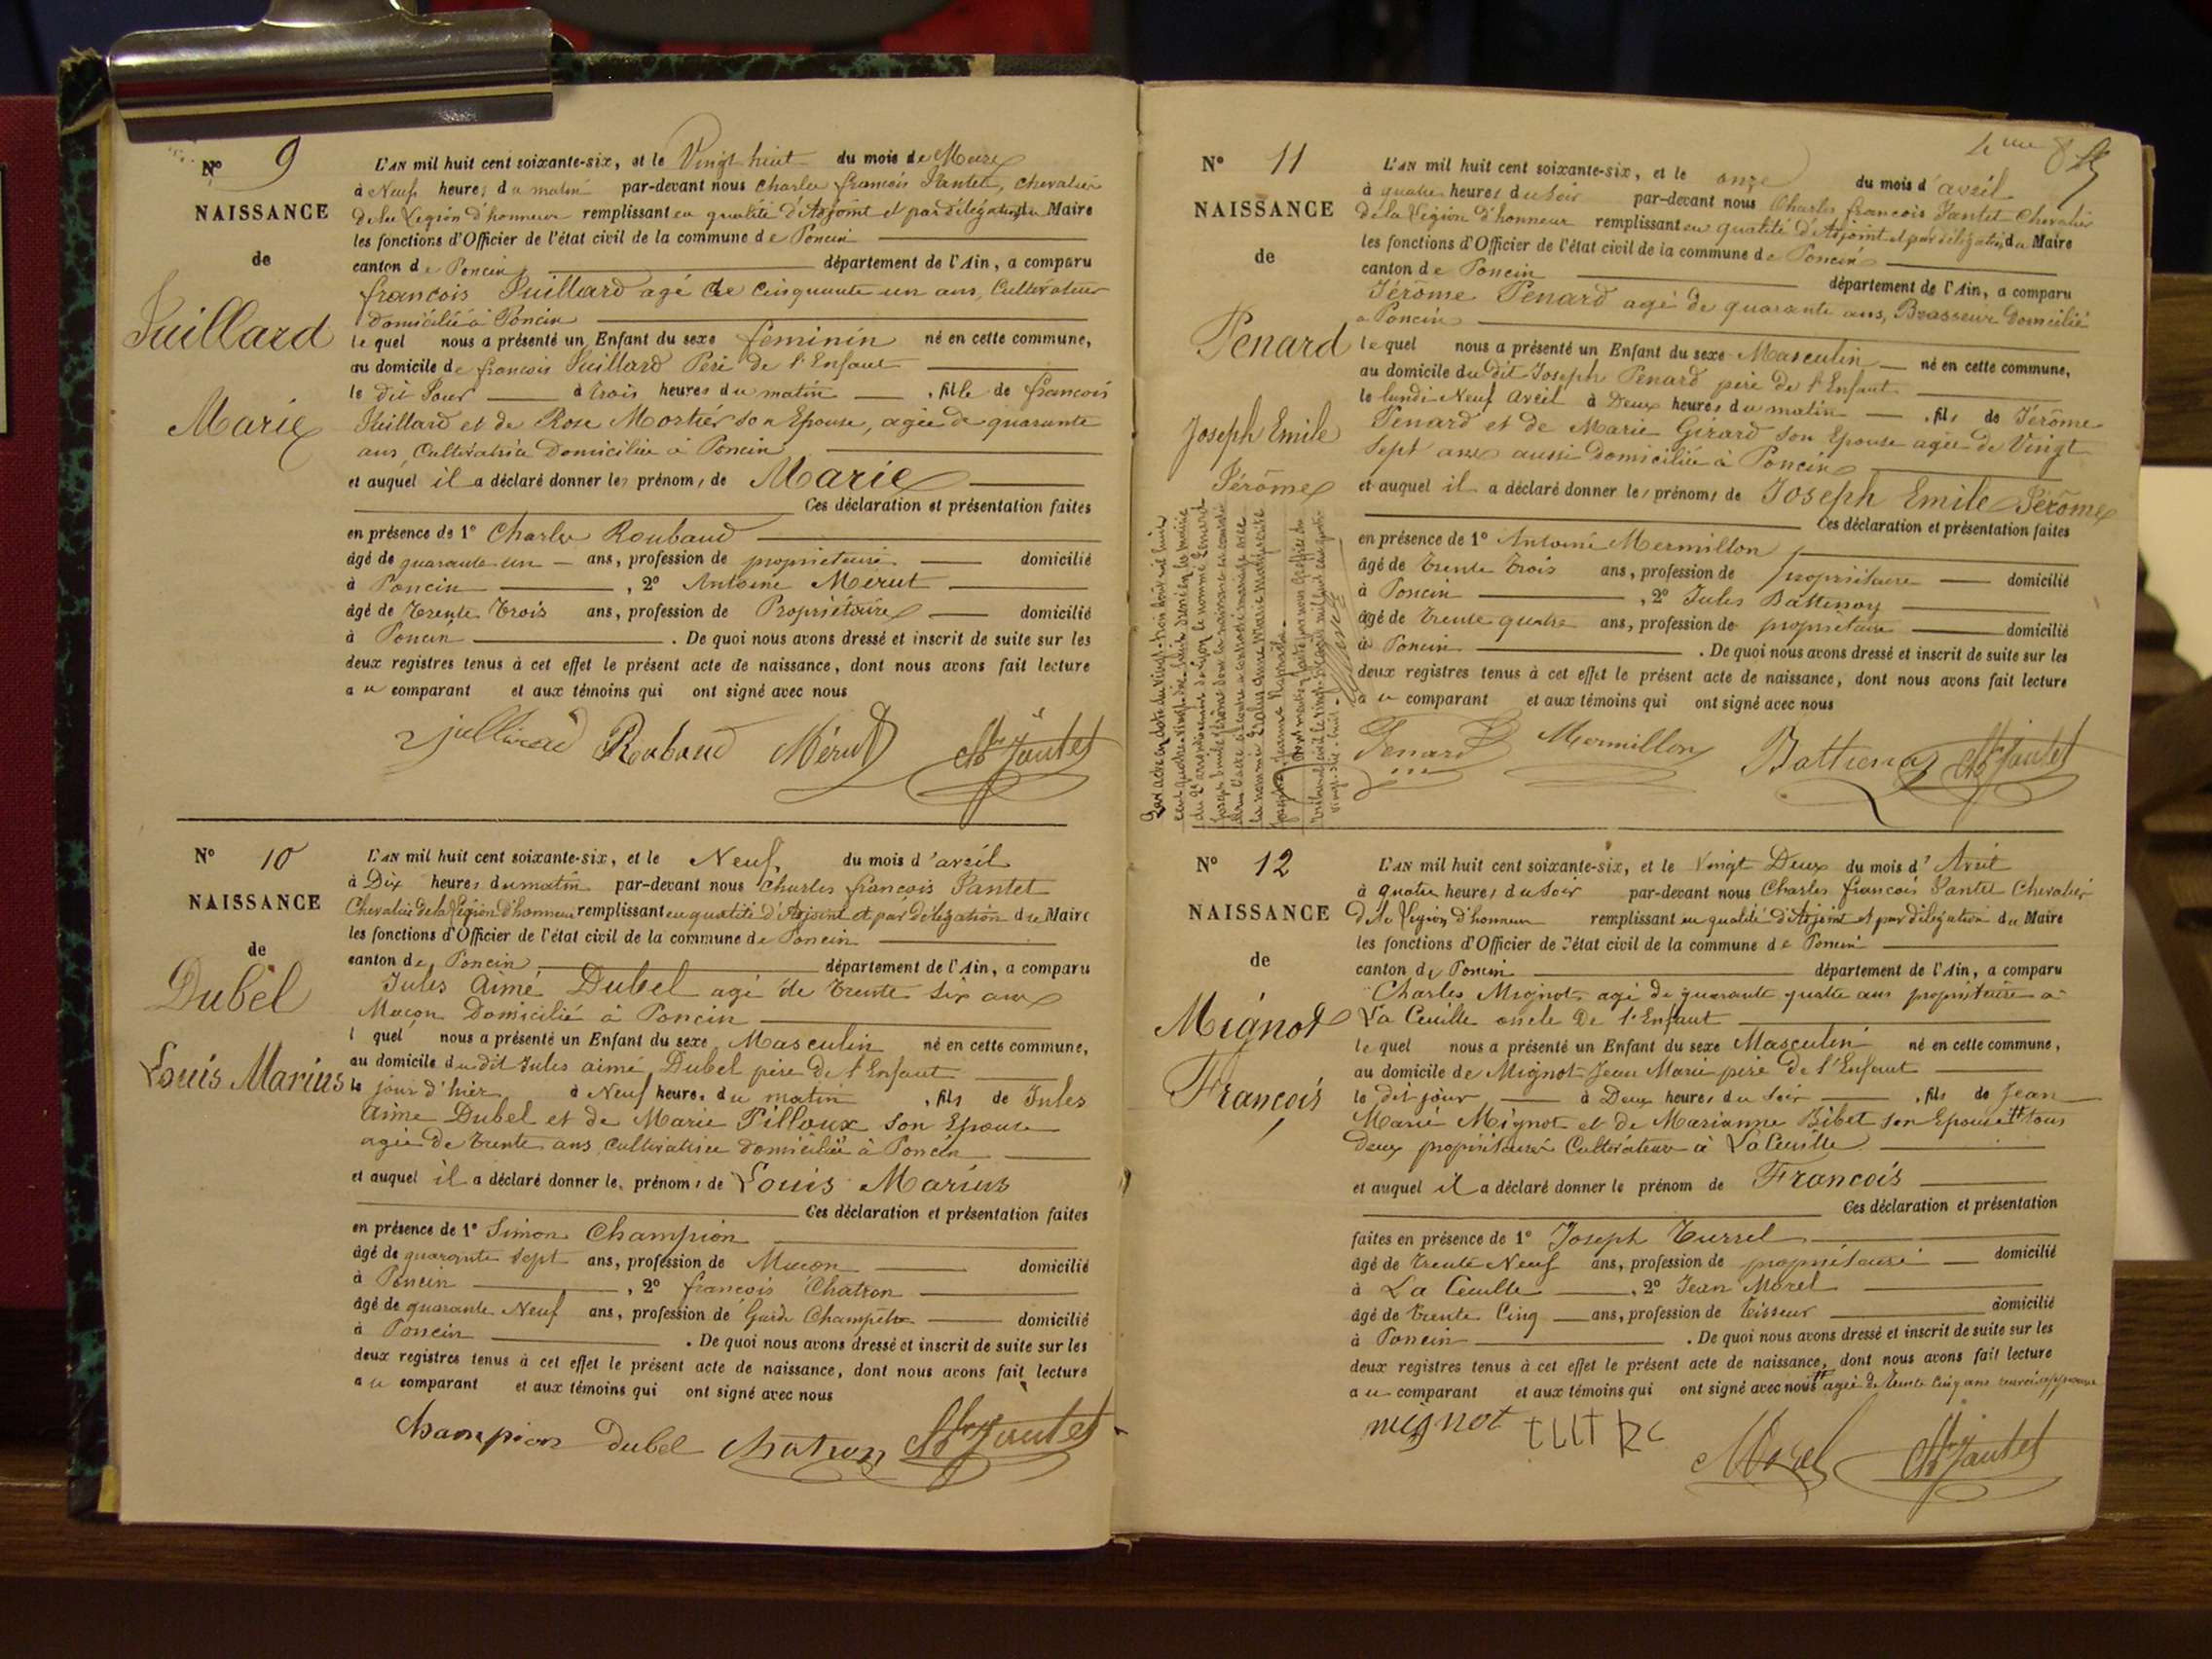 N° 9
NAISSANCE
de
Juillard
Marie
L'AN mil huit cent soixante-six, et le Vingt huit du mois de Mars
à Neuf heures du matin par-devant nous Charles françois Jantet, chevalier
de la Legion d'honneur remplissant en qualité d'Adjoint et par délégation du Maire
les fonctions d'Officier de l'état civil de la commune de Poncin
canton de Poncin département de l'Ain, a comparu
françois Juillard agé de Cinquante un ans, Cultivateur
domicilié à Poncin
le quel nous a présenté un Enfant du sexe feminin né en cette commune,
au domicile de françois Juillard Père de l'Enfant
le dit Jour à trois heures du matin , fille de françois
Juillard et de Rose Mortier son Epouse, agée de quarante
ans, Cultivatrice Domiciliée à Poncin
et auquel il a déclaré donner les prénoms de Marie
Ces déclaration et présentation faites
en présence de 1° Charles Roubaud
âgé de quarante un ans, profession de propriétaire domicilié
à Poncin , 2° Antoine Mérut
âgé de Trente Trois ans, profession de Propriétaire domicilié
à Poncin . De quoi nous avons dressé et inscrit de suite sur les
deux registres tenus à cet effet le présent acte de naissance, dont nous avons fait lecture
au comparant et aux témoins qui ont signé avec nous
juillirad Roubaud Mérut Ch Jantet
N° 10
NAISSANCE
de
Dubel
Louis Marius
L'AN mil huit cent soixante-six, et le Neuf du mois d'avril
à Dix heures du matin par-devant nous Charles françois Jantet
Chevalier de la Légion d'honneur remplissant en qualité d'Adjoint et par délégation du Maire
les fonctions d'Officier de l'état civil de la commune de Poncin
canton de Poncin département de l'Ain, a comparu
Jules Aimé Dubel agé de trente six ans
Maçon Domicilié à Poncin
l quel nous a présenté un Enfant du sexe Masculin né en cette commune,
au domicile du dit Jules aimé Dubel père de l'Enfant
le jour d'hier à Neuf heures du matin , fils de Jules
Aimé Dubel et de Marie Pilloux son Epouse
agée de trente ans, cultivatrice domiciliée à Poncin
et auquel il a déclaré donner les prénoms de Louis Marius
Ces déclaration et présentation faites
en présence de 1° Simon Champion
âgé de quarante sept ans, profession de Maçon domicilié
à Poncin , 2° françois Chatron
âgé de quarante Neuf ans, profession de Garde Champêtre domicilié
à Poncin . De quoi nous avons dressé et inscrit de suite sur les
deux registres tenus à cet effet le présent acte de naissance, dont nous avons fait lecture
au comparant et aux témoins qui ont signé avec nous
Champion Dubel Chatron Ch Jantet
N° 11
NAISSANCE
de
Penard
Joseph Emile
Jérôme
L'AN mil huit cent soixante-six, et le onze du mois d'avril
à quatre heures du soir par-devant nous Charles françois Jantet Chevalier
de la Légion d'honneur remplissant en qualité d'Adjoint et par délégation du Maire
les fonctions d'Officier de l'état civil de la commune de Poncin
canton de Poncin département de l'Ain, a comparu
Jérôme Penard agé de quarante ans, Brasseur Domicilié
a Poncin
le quel nous a présenté un Enfant du sexe Masculin né en cette commune,
au domicile du dit Joseph Penard père de l'Enfant
le lundi Neuf avril à Deux heures du matin , fils de Jérôme
Penard et de Marie Girard son Epouse agée de Vingt
Sept ans aussi domiciliée à Poncin
et auquel il a déclaré donner les prénoms de Joseph Emile Jérôme
Ces déclaration et présentation faites
en présence de 1° Antoine Mermillon
âgé de trente trois ans, profession de propriétaire domicilié
à Poncin , 2° Jules Battenay
âgé de trente quatre ans, profession de propriétaire domicilié
à Poncin . De quoi nous avons dressé et inscrit de suite sur les
deux registres tenus à cet effet le présent acte de naissance, dont nous avons fait lecture
au comparant et aux témoins qui ont signé avec nous
Penard Mermillon Ch Jantet
N° 12
NAISSANCE
de
Mignot
François
L'AN mil huit cent soixante-six, et le Vingt Deux du mois d'Avril
à quatre heures du soir par-devant nous Charles françois Jantet Chevalier
de la Légion d'honneur remplissant en qualité d'Adjoint et par délégation du Maire
les fonctions d'Officier de l'état civil de la commune de Poncin
canton de Poncin département de l'Ain, a comparu
Charles Mignot agé de quarante quatre ans propriétaire a
La Cueille oncle de l'Enfant
le quel nous a présenté un Enfant du sexe Masculin né en cette commune,
au domicile de Mignot Jean Marie père de l'Enfant
le dit jour à Deux heures du soir , fils de Jean
Marie Mignot et de Marianne Bibet son Epouse tous
Deux propriétaires Cultivateurs à La Cueille
et auquel il a déclaré donner le prénom de François
Ces déclaration et présentation
faites en présence de 1° Joseph
âgé de trente Neuf ans, profession de propriétaire domicilié
à La Cueille , 2° Jean Morel
âgé de trente Cinq ans, profession de tisseur domicilié
à Poncin . De quoi nous avons dressé et inscrit de suite sur les
deux registres tenus à cet effet le présent acte de naissance, dont nous avons fait lecture
au comparant et aux témoins qui ont signé avec nous agée de trente cinq ans
mignot Morel Ch Jantet